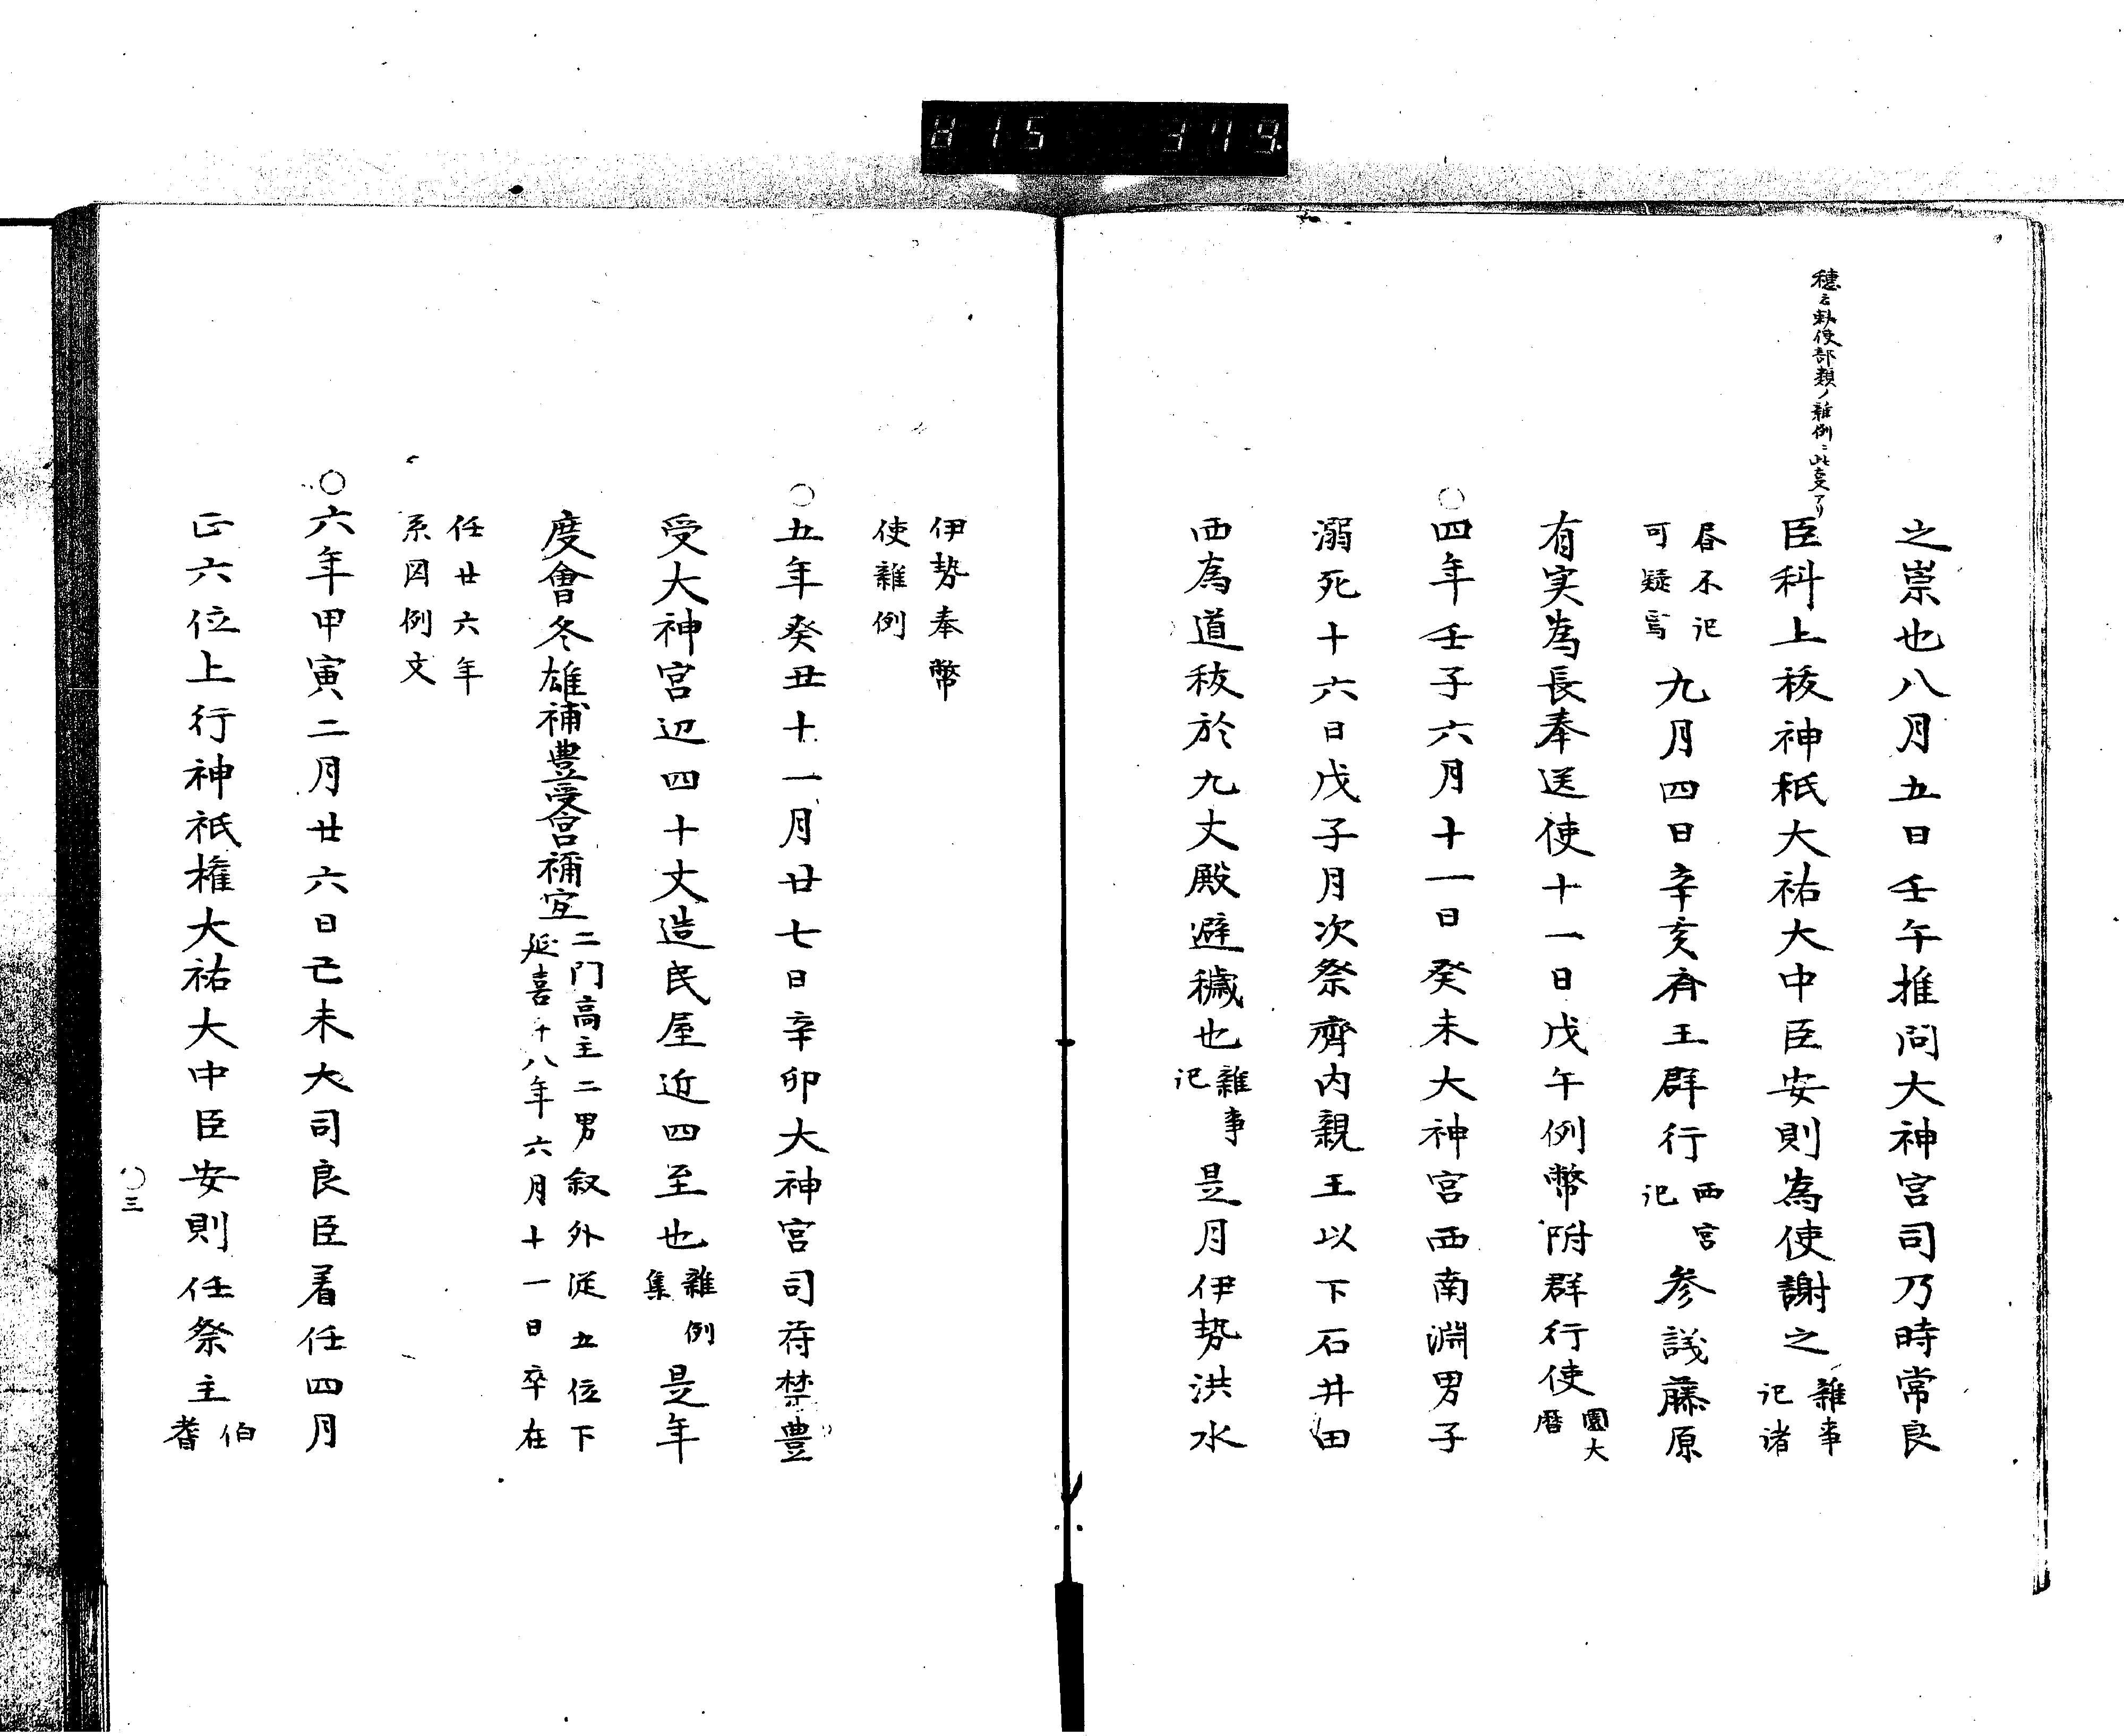 815 379
穂云勅使部類ノ雑例ニ此文アリ
之祟也八月五日壬午推問大神宮司乃時常良
臣科上秡神祇大祐大中臣安則為使謝之雑事記諸
昏不記可疑写九月四日辛亥斉王群行西宮記参議藤原
有実為長奉送使十一日戊午例幣附群行使園大暦
○四年壬子六月十一日癸未大神宮西南淵男子
溺死十六日戊子月次祭齊内親王以下石井田
西為道秡於九丈殿避穢也雑事記是月伊勢洪水
伊勢奉幣使雑例
○五年癸丑十一月廿七日辛卯大神宮司符禁豊
受大神宮辺四十丈造民屋近四至也雑例集是年
度會冬雄補豊受宮祢宜二門高主二男叙外従五位下延喜十八年六月十一日卒在
任廿六年系図例文
○六年甲寅二月廿六日己未大司良臣着任四月
正六位上行神祇権大祐大中臣安則任祭主伯耆
三